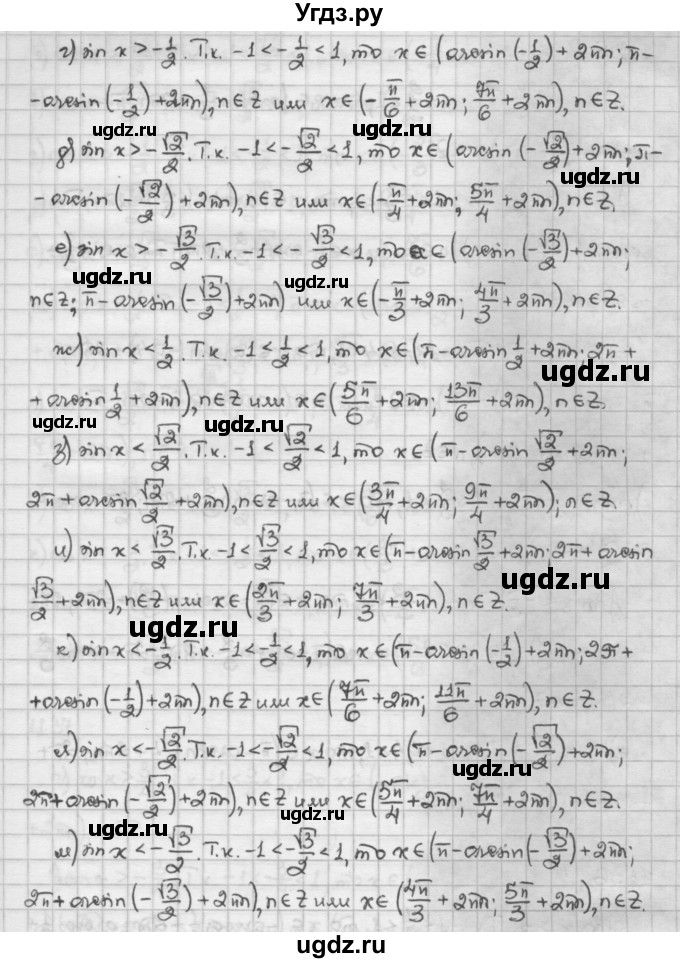 Угдз.ру
г) sin x > -1/2. Т.к. -1 < -1/2 < 1, то x ∈ (arcsin(-1/2) + 2πn; π-
- arcsin(-1/2) + 2πn), n ∈ Z или x ∈ (-π/6 + 2πn; 7π/6 + 2πn), n ∈ Z.
ugdz.ru
ugdz.ru
д) sin x > -√2/2. Т.к. -1 < -√2/2 < 1, то x ∈ (arcsin(-√2/2) + 2πn; π-
ugdz.ru
- arcsin(-√2/2) + 2πn), n ∈ Z или x ∈ (-π/4 + 2πn; 5π/4 + 2πn), n ∈ Z.
ugdz.ru
е) sin x > -√3/2. Т.к. -1 < -√3/2 < 1, то x ∈ (arcsin(-√3/2) + 2πn;
ugdz.ru
ugdz.ru
n ∈ Z; π - arcsin(-√3/2) + 2πn) или x ∈ (-π/3 + 2πn; 4π/3 + 2πn), n ∈ Z.
ж) sin x < 1/2. Т.к. -1 < 1/2 < 1, то x ∈ (π - arcsin 1/2 + 2πn; 2π +
ugdz.ru
+ arcsin 1/2 + 2πn), n ∈ Z или x ∈ (5π/6 + 2πn; 13π/6 + 2πn), n ∈ Z.
ugdz.ru
ugdz.ru
з) sin x < √2/2. Т.к. -1 < √2/2 < 1, то x ∈ (π - arcsin √2/2 + 2πn;
2π + arcsin √2/2 + 2πn), n ∈ Z или x ∈ (3π/4 + 2πn; 9π/4 + 2πn); n ∈ Z.
ugdz.ru
и) sin x < √3/2. Т.к. -1 < √3/2 < 1, то x ∈ (π - arcsin √3/2 + 2πn; 2π + arcsin
ugdz.ru
√3/2 + 2πn), n ∈ Z или x ∈ (2π/3 + 2πn; 7π/3 + 2πn), n ∈ Z.
ugdz.ru
к) sin x < -1/2. Т.к. -1 < -1/2 < 1, то x ∈ (π - arcsin(-1/2) + 2πn; 2π +
ugdz.ru
+ arcsin(-1/2) + 2πn), n ∈ Z или x ∈ (7π/6 + 2πn; 11π/6 + 2πn), n ∈ Z.
ugdz.ru
л) sin x < -√2/2. Т.к. -1 < -√2/2 < 1, то x ∈ (π - arcsin(-√2/2) + 2πn;
ugdz.ru
2π + arcsin(-√2/2) + 2πn), n ∈ Z или x ∈ (5π/4 + 2πn; 7π/4 + 2πn), n ∈ Z.
ugdz.ru
ugdz.ru
м) sin x < -√3/2. Т.к. -1 < -√3/2 < 1, то x ∈ (π - arcsin(-√3/2) + 2πn;
2π + arcsin(-√3/2) + 2πn), n ∈ Z или x ∈ (4π/3 + 2πn; 5π/3 + 2πn), n ∈ Z.
ugdz.ru